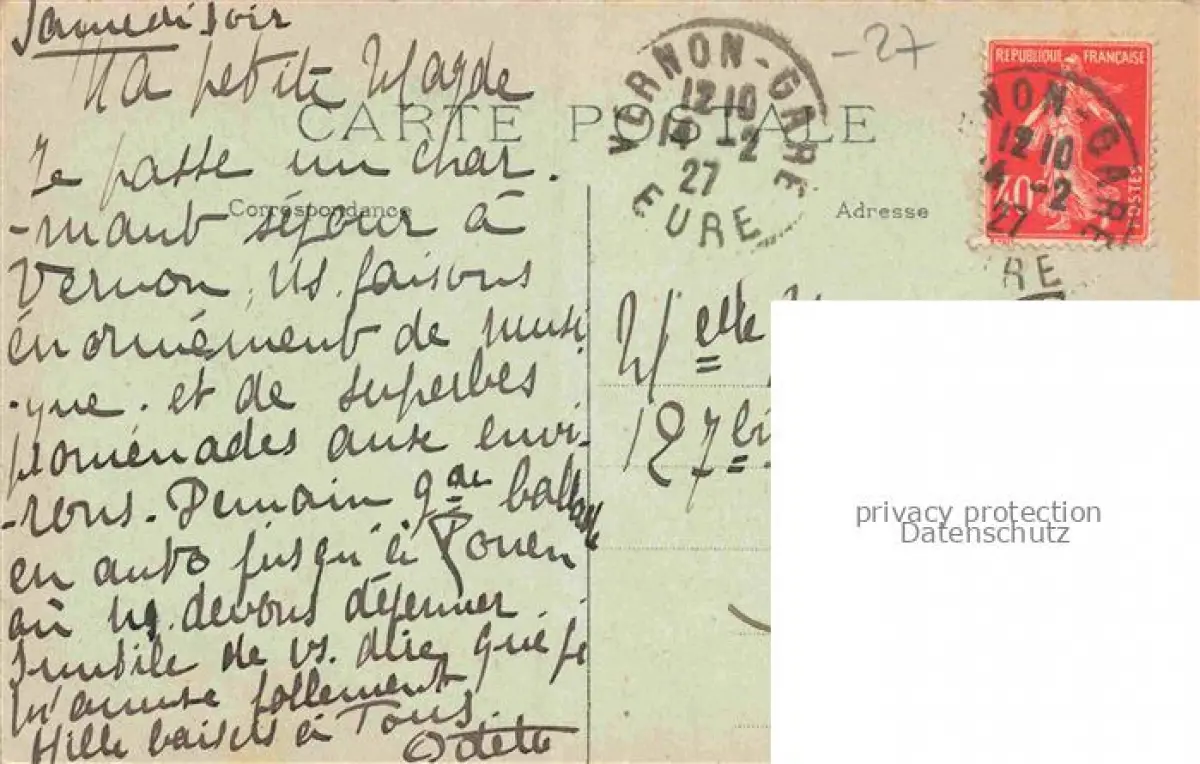 Samedi soir
Ma petite Magde
CARTE POSTALE
Je passe un char-
Correspondance
-mant séjour à
Vernon, ns. faisons
énormément de musi
-que. et de superbes
promenades aux envi-
-rons. Demain gde ballade
en auto jusqu'à Rouen
où ns. devons déjeuner.
Inutile de vs. dire que je
m'amuse follement
Mille baisers à Tous.
Odette
-27
VERNON-GARE
12 10
14 -2
27
EURE
REPUBLIQUE FRANÇAISE
40
POSTES
NON-GARE
12 10
4 -2
27
RE
Adresse
Melle
127 bis
privacy protection
Datenschutz